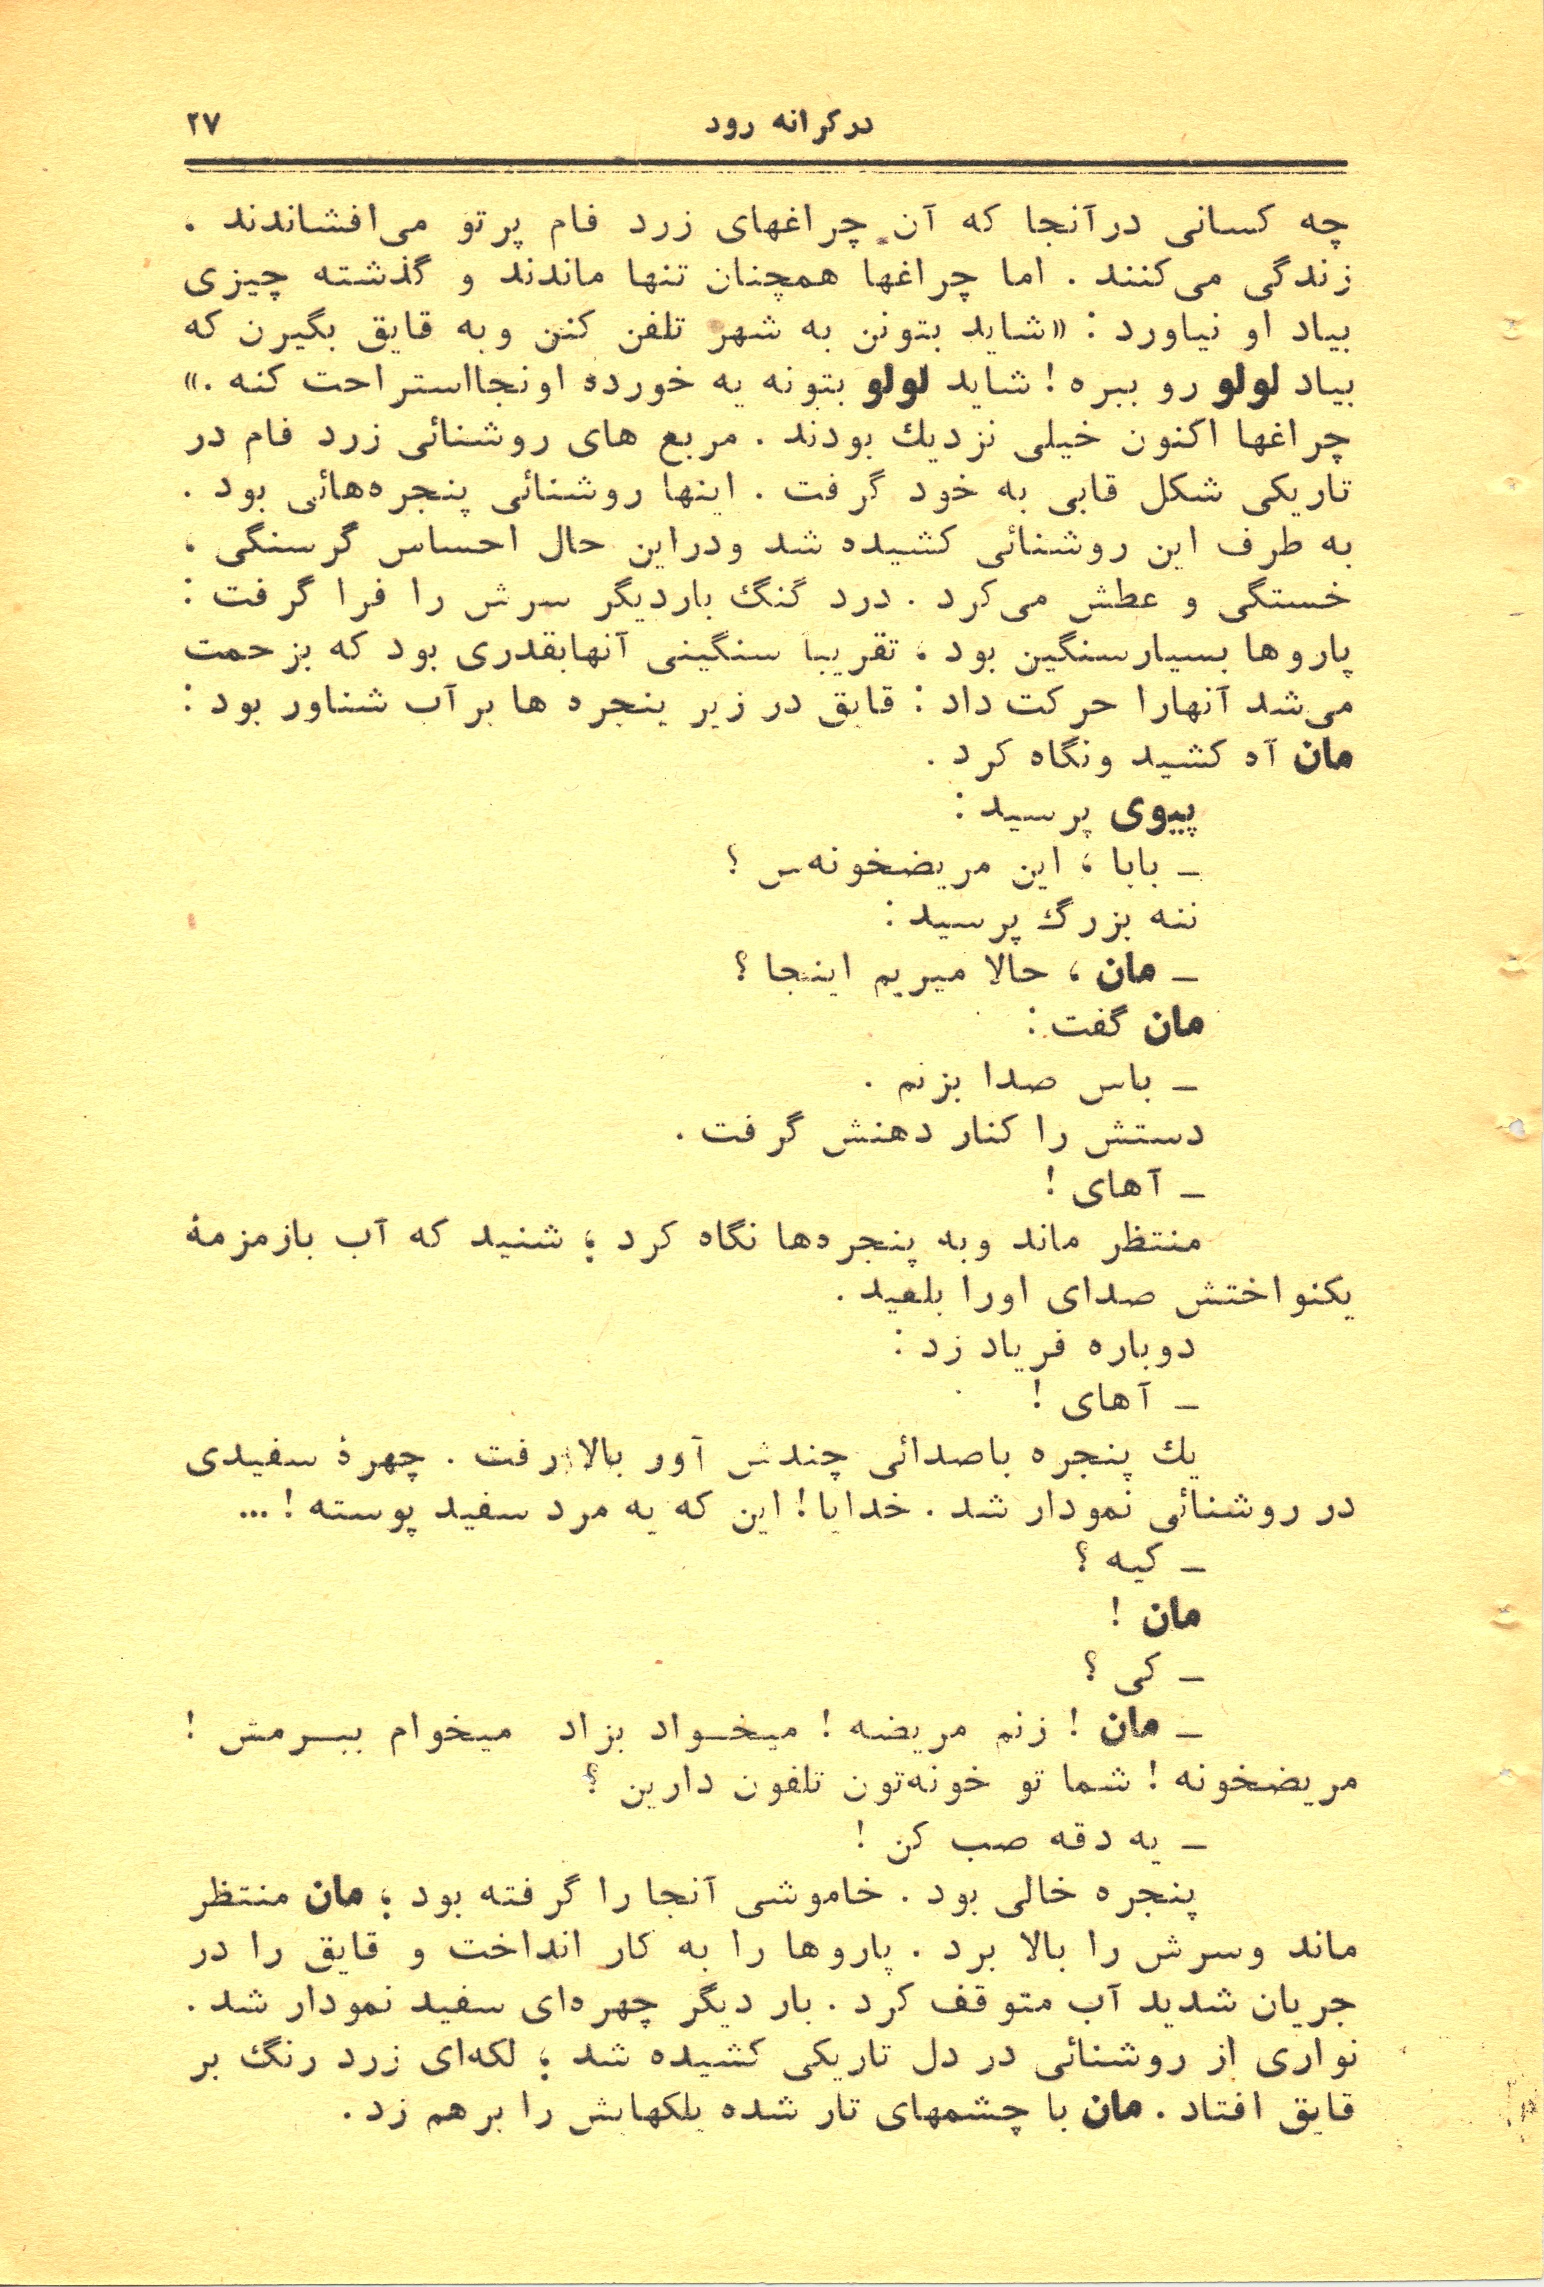 در کرانه رود ۲۷
چه کسانی درآنجا که آن چراغهای زرد فام پرتو می‌افشاندند ،
زندگی می‌کنند . اما چراغها همچنان تنها ماندند و گذشته چیزی
بیاد او نیاورد : «شاید بتونن به شهر تلفن کنن وبه قایق بگیرن که
بیاد لولو رو ببره ! شاید لولو بتونه یه خورده اونجااستراحت کنه .»
چراغها اکنون خیلی نزدیك بودند . مربع های روشنائی زرد فام در
تاریکی شکل قابی به خود گرفت . اینها روشنائی پنجره‌هائی بود .
به طرف این روشنائی کشیده شد ودراین حال احساس گرسنگی ،
خستگی و عطش می‌کرد . درد گنگ باردیگر سرش را فرا گرفت :
پاروها بسیارسنگین بود ، تقریباً سنگینی آنهابقدری بود که بزحمت
می‌شد آنهارا حرکت داد : قایق در زیر پنجره ها برآب شناور بود :
مان آه کشید ونگاه کرد .
پیوی پرسید :
ـ بابا ، این مریضخونه‌س ؟
ننه بزرگ پرسید :
ـ مان ، حالا میریم اینجا ؟
مان گفت :
ـ باس صدا بزنم .
دستش را کنار دهنش گرفت .
ـ آهای !
منتظر ماند وبه پنجره‌ها نگاه کرد ؛ شنید که آب بازمزمهٔ
یکنواختش صدای اورا بلعید .
دوباره فریاد زد :
ـ آهای !
یك پنجره باصدائی چندش آور بالا رفت . چهرهٔ سفیدی
در روشنائی نمودار شد . خدایا ! این که یه مرد سفید پوسته ! ...
ـ کیه ؟
مان !
ـ کی ؟
ـ مان ! زنم مریضه ! میخـواد بزاد میخوام ببـرمش !
مریضخونه ! شما تو خونه‌تون تلفون دارین ؟
ـ یه دقه صب کن !
پنجره خالی بود . خاموشی آنجا را گرفته بود ؛ مان منتظر
ماند وسرش را بالا برد . پاروها را به کار انداخت و قایق را در
جریان شدید آب متوقف کرد . بار دیگر چهره‌ای سفید نمودار شد .
نواری از روشنائی در دل تاریکی کشیده شد ؛ لکه‌ای زرد رنگ بر
قایق افتاد . مان با چشمهای تار شده پلکهایش را برهم زد .